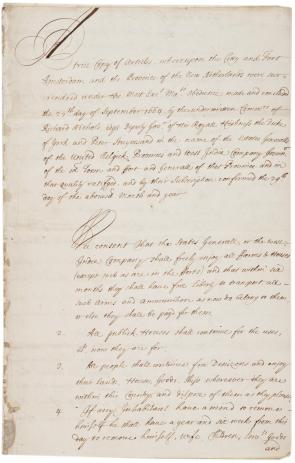 A
true Copy of Articles, whereupon the City and Fort
Amsterdam and the Province of the New Netherlands were sur
rendred under the
the 27th day of September 1664, by the
Richard Nicholls Esqr Deputy Govr of His Royall Highness the Duke
of York and Peter Stuyvesand in the name of the States Generalls
of the United Belgick Provinces and West India Company Govern
of the Town, and Fort and Generalls of that Province and in
that quality ratifyed, and by their Subscription confirmed the 29th
day of the abovesd Month and year
We consent that the States Generall, or the west
India Company shall freely enjoy all ffarms & Houses
(except such as are in the fforts) and that within six
months they shall have free liberty to transport all
such Arms and ammunition as now do belong to them
or else they shall be paid for them.
2. All publick Houses shall continue for the uses,
now they are for.
3. All people shall continue free Denizens and enjoy
their Lands, Houses, Goods, Ships wheresoever they are
within this Country and dispose of them as they please
4. If any Inhabitant have a mind to remove
himself he shall have a year and six weeks from this
day to remove himself, wife, Children, Servts, Goods
and